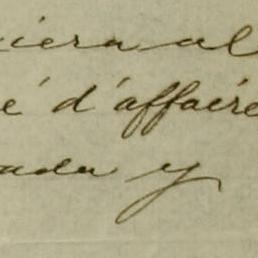 iera al
é d'affaire
ada y